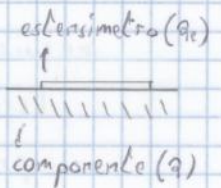 estensimetro (αe)
componente (α)